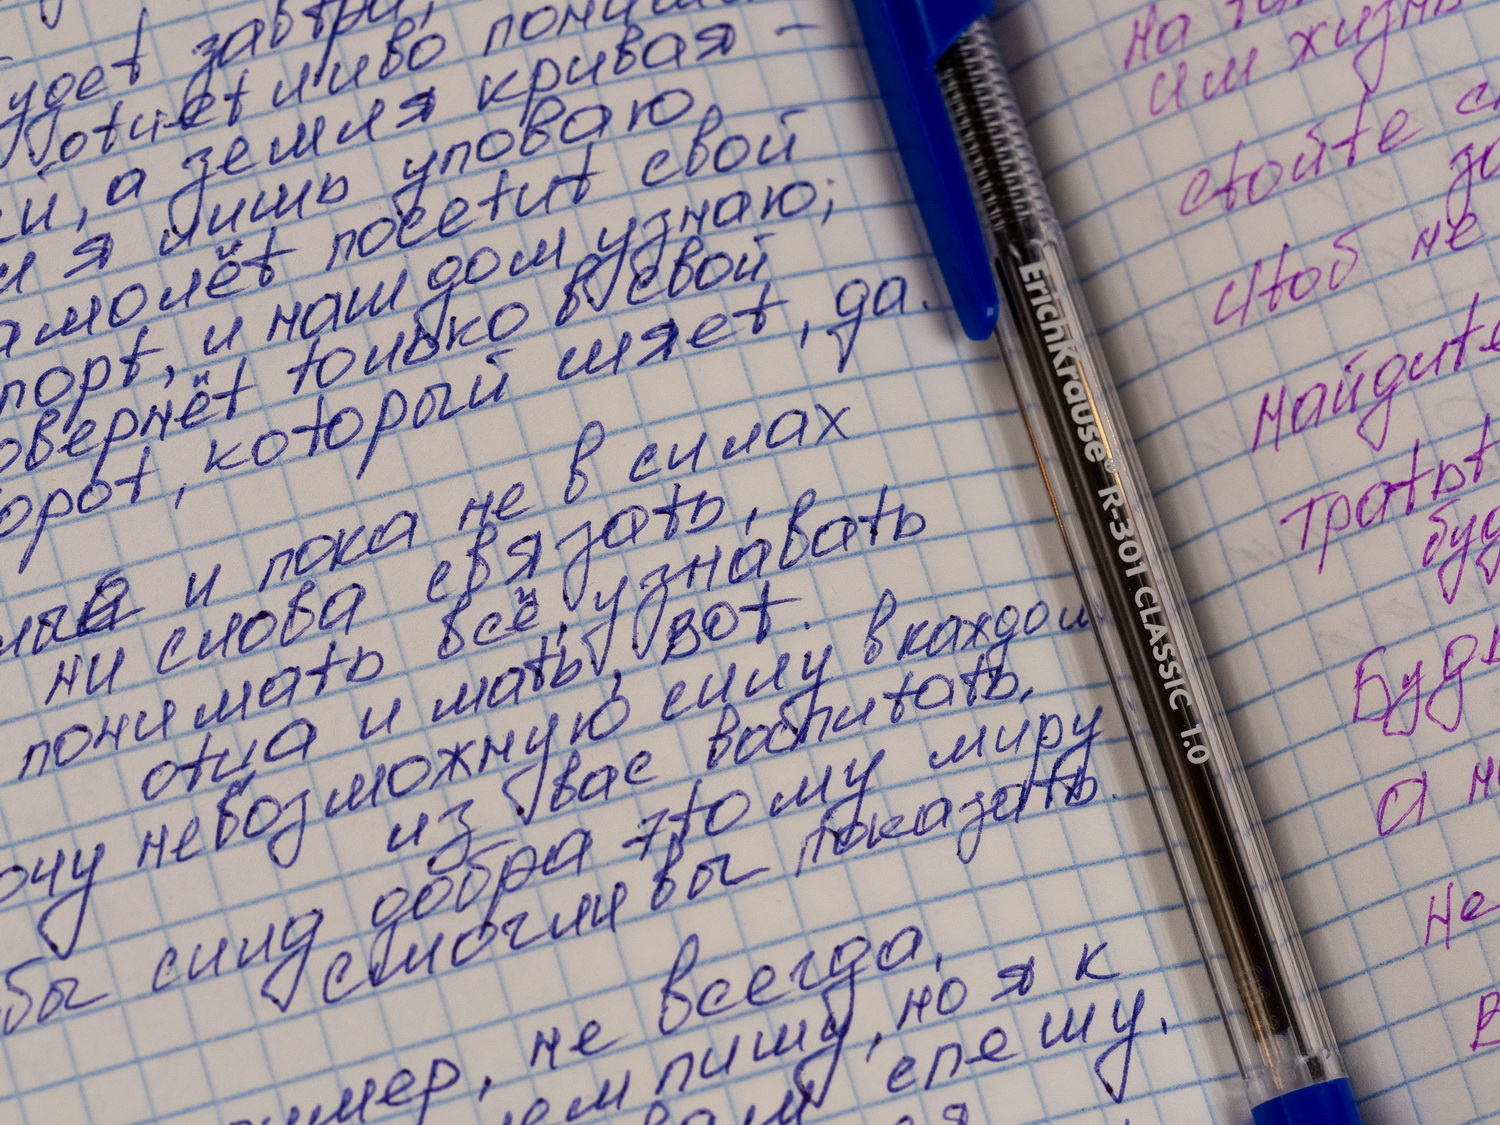 удет завтра,
отчетливо
й, а земля кривая –
я лишь уповаю
амолёт посетит свой
порт, и наш дом узнаю;
овернёт только в свой
орот, который шяет, да.
и пока не в силах
ни слова связать,
понимать всё, узнавать
отца и мать, вот.
очу невозможную силу в каждом
из вас воспитать,
бы силд добра этому миру
смогли вы показать.
ример, не всегда,
ем пишу, но я к
вам спешу.
ErichKrause® R-301 CLASSIC 1.0
на
им жизнь
стойте
за
Чтоб не
найдите
тратьт
буд
Буд
а
не
В